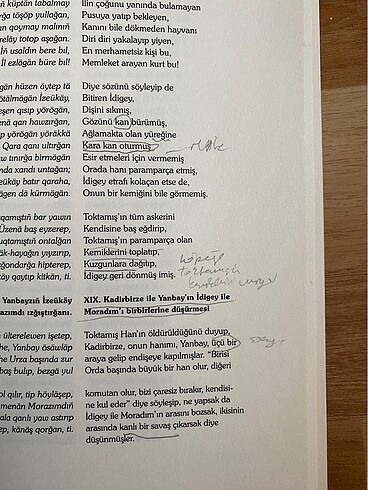 iñ küptän tabalmay
rğa töşöp yullağan,
an qoymay malınıñ
relây totop aşağan.
İñ usaldın bere bil,
İl ezlägän büre bil!
hän hüzen äytep tä
ötälmägän İzeükäy,
eşen qısıp yörögän,
enä qan hawzırğan,
ep yörögän yöräkkä
Qara qanı ultırğan
ew tınırğa birmägän
nda xandı untağan;
eükäy batır qaraha,
ägen dä kürmägän.
qamıştıñ bar yawın
Üzenä baş eyzerep,
uqtamıştıñ ontalğan
ák-hayağın yıyızıp,
zğondarğa hipterep,
käy qaytıp kitkän, ti.
Yanbayzıñ İzeükäy
azımdı ızğıştırğanı.
ñ ülterelewen işetep,
he, Yanbay ösäwläp
he Urza başında zur
baş bulıp, bezgä yul
ol qılır, tip höyläşep,
menän Morazımdıñ
ala qanlı yaw astırıp
ep, känäş qorğan, ti.
İlin çoğunu yanında bulamayan
Pusuya yatıp bekleyen,
Kanını bile dökmeden hayvanı
Diri diri yakalayıp yiyen,
En merhametsiz kişi bu,
Memleket arayan kurt bu!
Diye sözünü söyleyip de
Bitiren İdigey,
Dişini sıkmış,
Gözünü kan bürümüş,
Ağlamakta olan yüreğine
Kara kan oturmuş
Esir etmeleri için vermemiş
Orada hanı paramparça etmiş,
İdigey etrafı kolaçan etse de,
Onun bir kemiğini bile görmemiş.
Toktamış'ın tüm askerini
Kendisine baş eğdirip,
Toktamış'ın paramparça olan
Kemiklerini toplatıp,
Kuzgunlara dağıtıp,
İdigey geri dönmüş imiş.
XIX. Kadirbirze ile Yanbay'ın İdigey ile
Moradım'ı birbirlerine düşürmesi
Toktamış Han'ın öldürüldüğünü duyup,
Kadirbirze, onun hanımı, Yanbay, üçü bir
araya gelip endişeye kapılmışlar. "Birisi
Orda başında büyük bir han olur, diğeri
komutan olur, bizi çaresiz bırakır, kendisi-
ne kul eder" diye söyleşip, ne yapsak da
İdigey ile Moradım'ın arasını bozsak, ikisinin
arasında kanlı bir savaş çıkarsak diye
düşünmüşler.